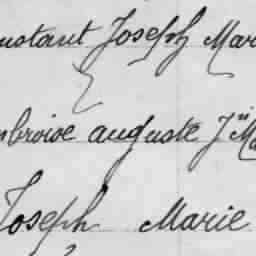 nstant Joseph Mar
mbroise auguste Jn Ma
Joseph Marie